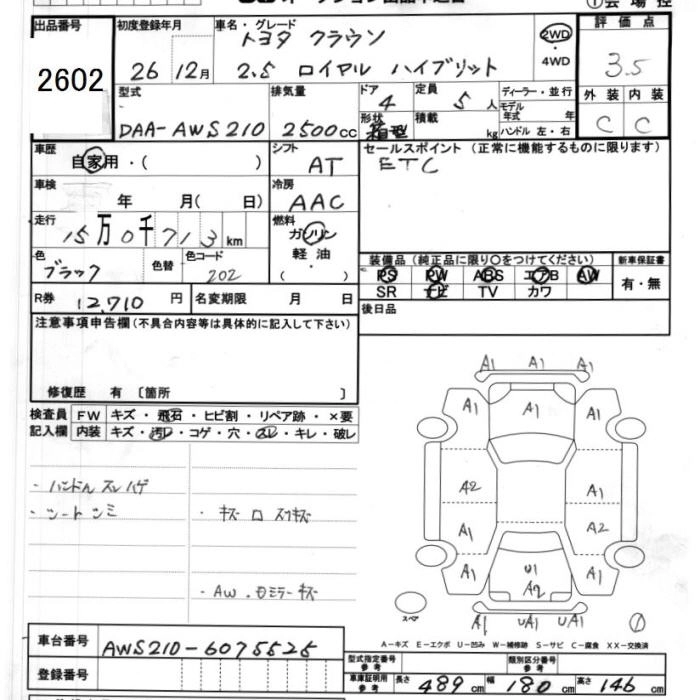 出品番号 2602
初度登録年月 26 12月
車名・グレード トヨタ クラウン
2.5 ロイヤル ハイブリット
2WD・4WD
評価点 3.5
外装 C 内装 C
型式 DAA-AWS210
排気量 2500cc
ドア 4 定員 5人
形状 箱型 積載 kg
ディーラー・並行
モデル年式 年式
ハンドル 左・右
車歴 自家用・( )
シフト AT
セールスポイント (正常に機能するものに限ります)
ETC
車検 年 月( 日)
冷房 AAC
走行 15万0千713km
燃料 ガソリン
軽油
・
( )
色 ブラック 色替 色コード 202
装備品 (純正品に限り○をつけてください) 新車保証書
PS PW ABS エアB AW 有・無
SR ナビ TV カワ
R券 12,710円 名変期限 月 日
後日品
注意事項申告欄(不具合内容等は具体的に記入して下さい)
修復歴 有 〔箇所 〕
検査員 FW キズ・飛石・ヒビ割・リペア跡・×要
記入欄 内装 キズ・汚レ・コゲ・穴・スレ・キレ・破レ
・ハンドル スレ ハゲ
・シート シミ ・キズ ロ スリキズ
・AW・Dミラー キズ
A1 A1 A1
A1 A1 A1
A2 A1
A1 A2
A1 U1 A1
A2
A1 UA1 UA1
スペア ①
A－キズ E－エクボ U－凹み W－補修跡 S－サビ C－腐食 XX－交換済
車台番号 AWS210-6075525
登録番号
型式指定番号 参考 類別区分番号 参考
車庫証明用 参考 長さ 489cm 幅 180cm 高さ 146cm